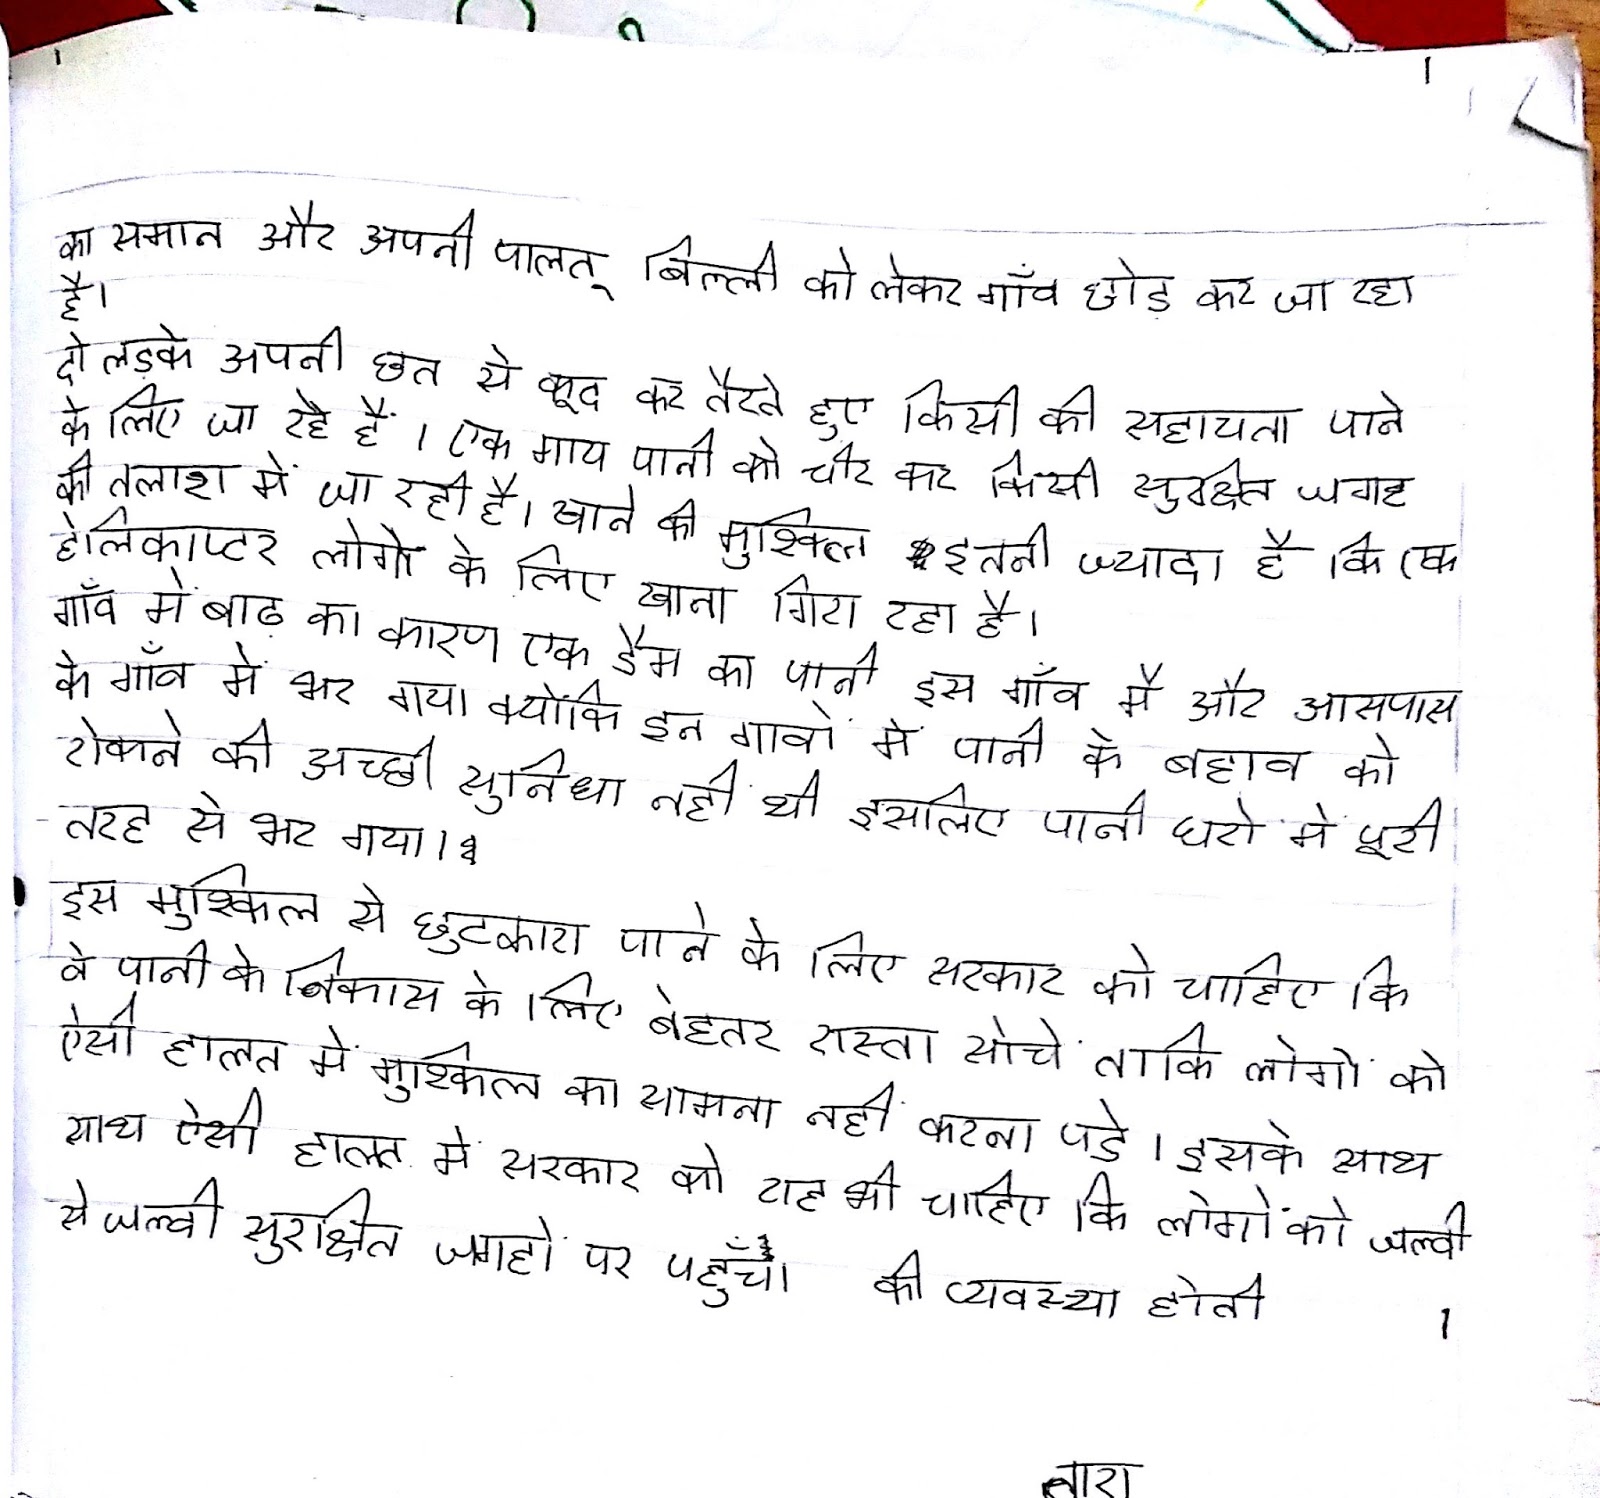 का समान और अपनी पालतू बिल्ली को लेकर गाँव छोड़ कर जा रहा
है।
दो लड़के अपनी छत से कूद कर तैरते हुए किसी की सहायता पाने
के लिए जा रहे हैं। एक गाय पानी को चीर कर किसी सुरक्षित जगह
की तलाश में जा रही है। खाने की मुश्किल इतनी ज्यादा है कि एक
हेलिकाप्टर लोगों के लिए खाना गिरा रहा है।
गाँव में बाढ़ का कारण एक डैम का पानी इस गाँव में और आसपास
के गाँव में भर गया क्योंकि इन गावों में पानी के बहाव को
रोकने की अच्छी सुविधा नहीं थी इसलिए पानी घरों में पूरी
तरह से भर गया।
इस मुश्किल से छुटकारा पाने के लिए सरकार को चाहिए कि
वे पानी के निकास के लिए बेहतर रास्ता सोचें ताकि लोगों को
ऐसी हालत में मुश्किल का सामना नहीं करना पडे। इसके साथ
साथ ऐसी हालत में सरकार को यह भी चाहिए कि लोगों को जल्दी
से जल्दी सुरक्षित जगहों पर की व्यवस्था होती
तारा